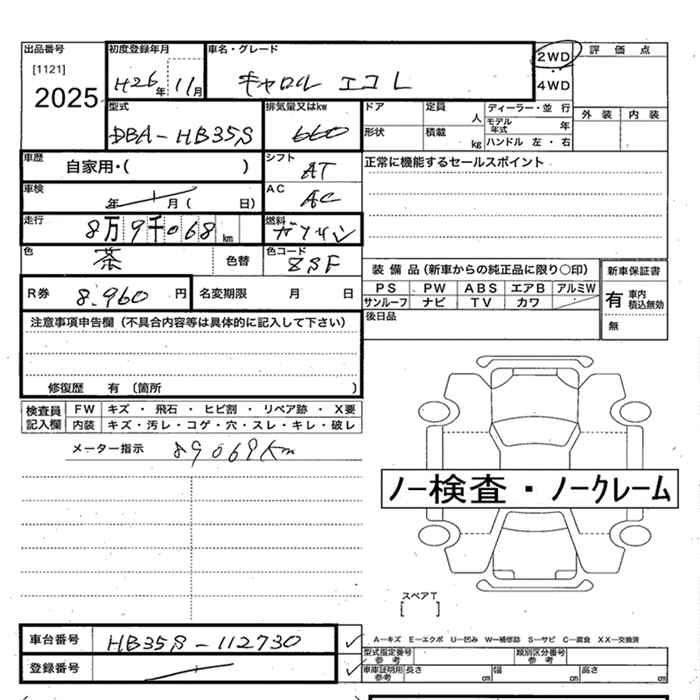 出品番号 初度登録年月 車名・グレード 2WD 評価点
[1121] H26年 11月 キャロル エコL 4WD
2025
型式 排気量又はkw ドア 定員 人 ディーラー・並行 外装 内装
DBA-HB35S 660 形状 積載 kg モデル年式 年
ハンドル 左・右
車歴 自家用・( ) シフト AT 正常に機能するセールスポイント
車検 年 月( 日) AC AC
走行 8万9千068km 燃料 ガソリン
色 茶 色替 色コード ZSF
装備品(新車からの純正品に限り○印) 新車保証書
R券 8.960円 名変期限 月 日 PS PW ABS エアB アルミW 有 車内積込無効
サンルーフ ナビ TV カワ
注意事項申告欄(不具合内容等は具体的に記入して下さい) 後日品 無
修復歴 有 〔箇所 〕
検査員 FW キズ ・ 飛石 ・ ヒビ割 ・ リペア跡 ・ X要
記入欄 内装 キズ・汚レ・コゲ・穴・スレ・キレ・破レ
メーター指示 89069Km
ノー検査・ノークレーム
スペアT
[ ]
車台番号 HB35S-112730 A-キズ E-エクボ U-凹み W-補修跡 S-サビ C-腐食 XX-交換済
型式指定番号 参考 類別区分番号 参考
登録番号 車庫証明用 参考 長さ cm 幅 cm 高さ cm